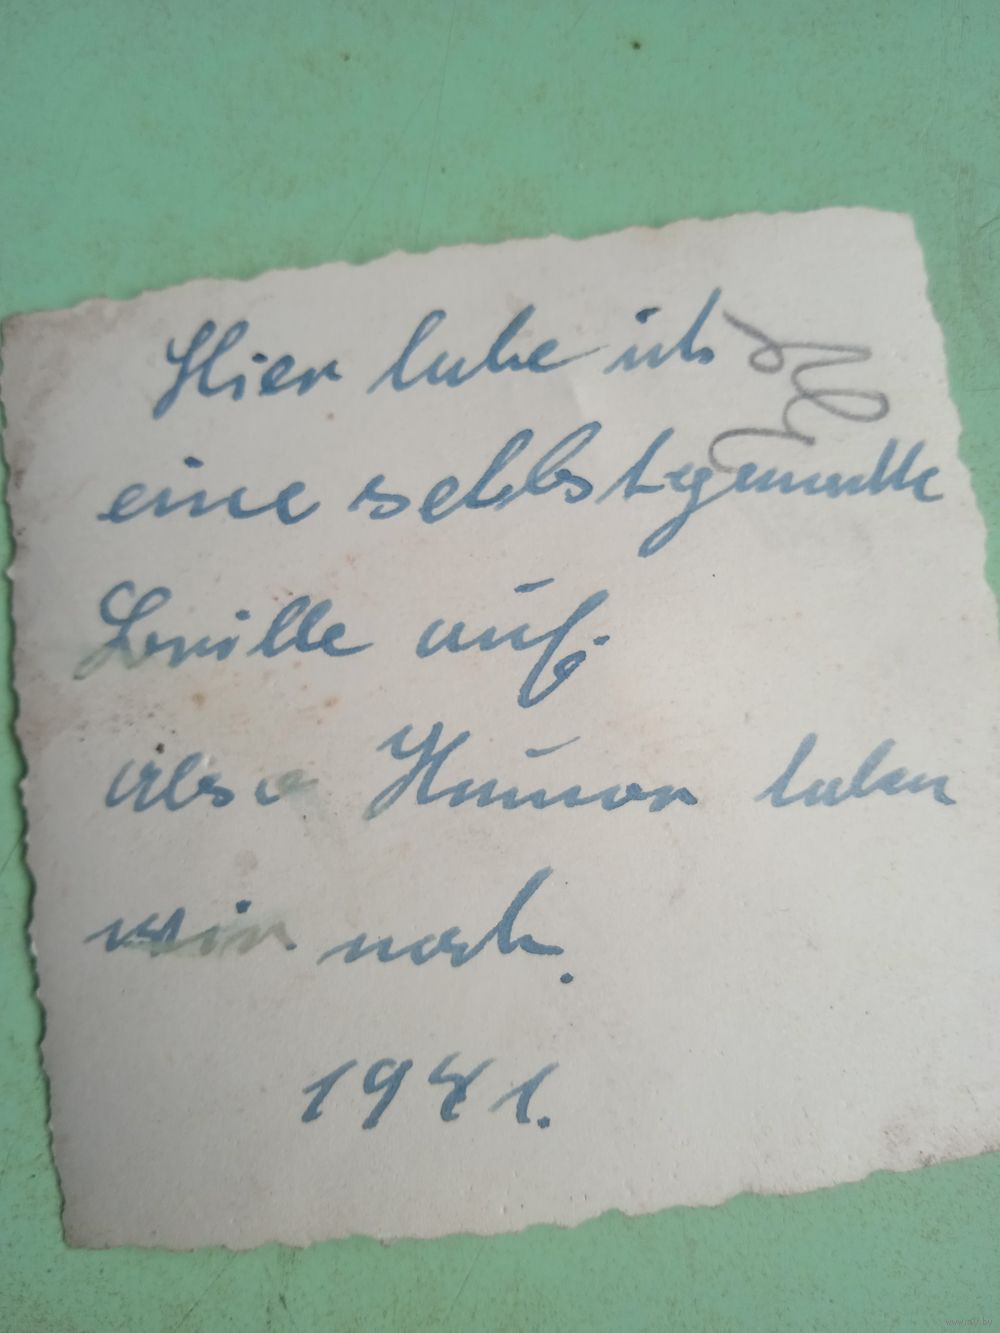 Hier habe ich
eine selbstgemachte
Brille auf.
also Humor haben
wir noch.
1941.